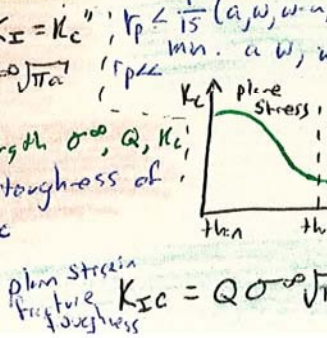 K_I = K_c" ; r_p < 1/15 (a, w, w-a,
min. a w, w
σ^∞ √πa
r_p <<
K_c plane stress
gth σ^∞, Q, K_c
toughness of
c
thin th
plane strain
fracture toughness
K_IC = Q σ^∞ √π